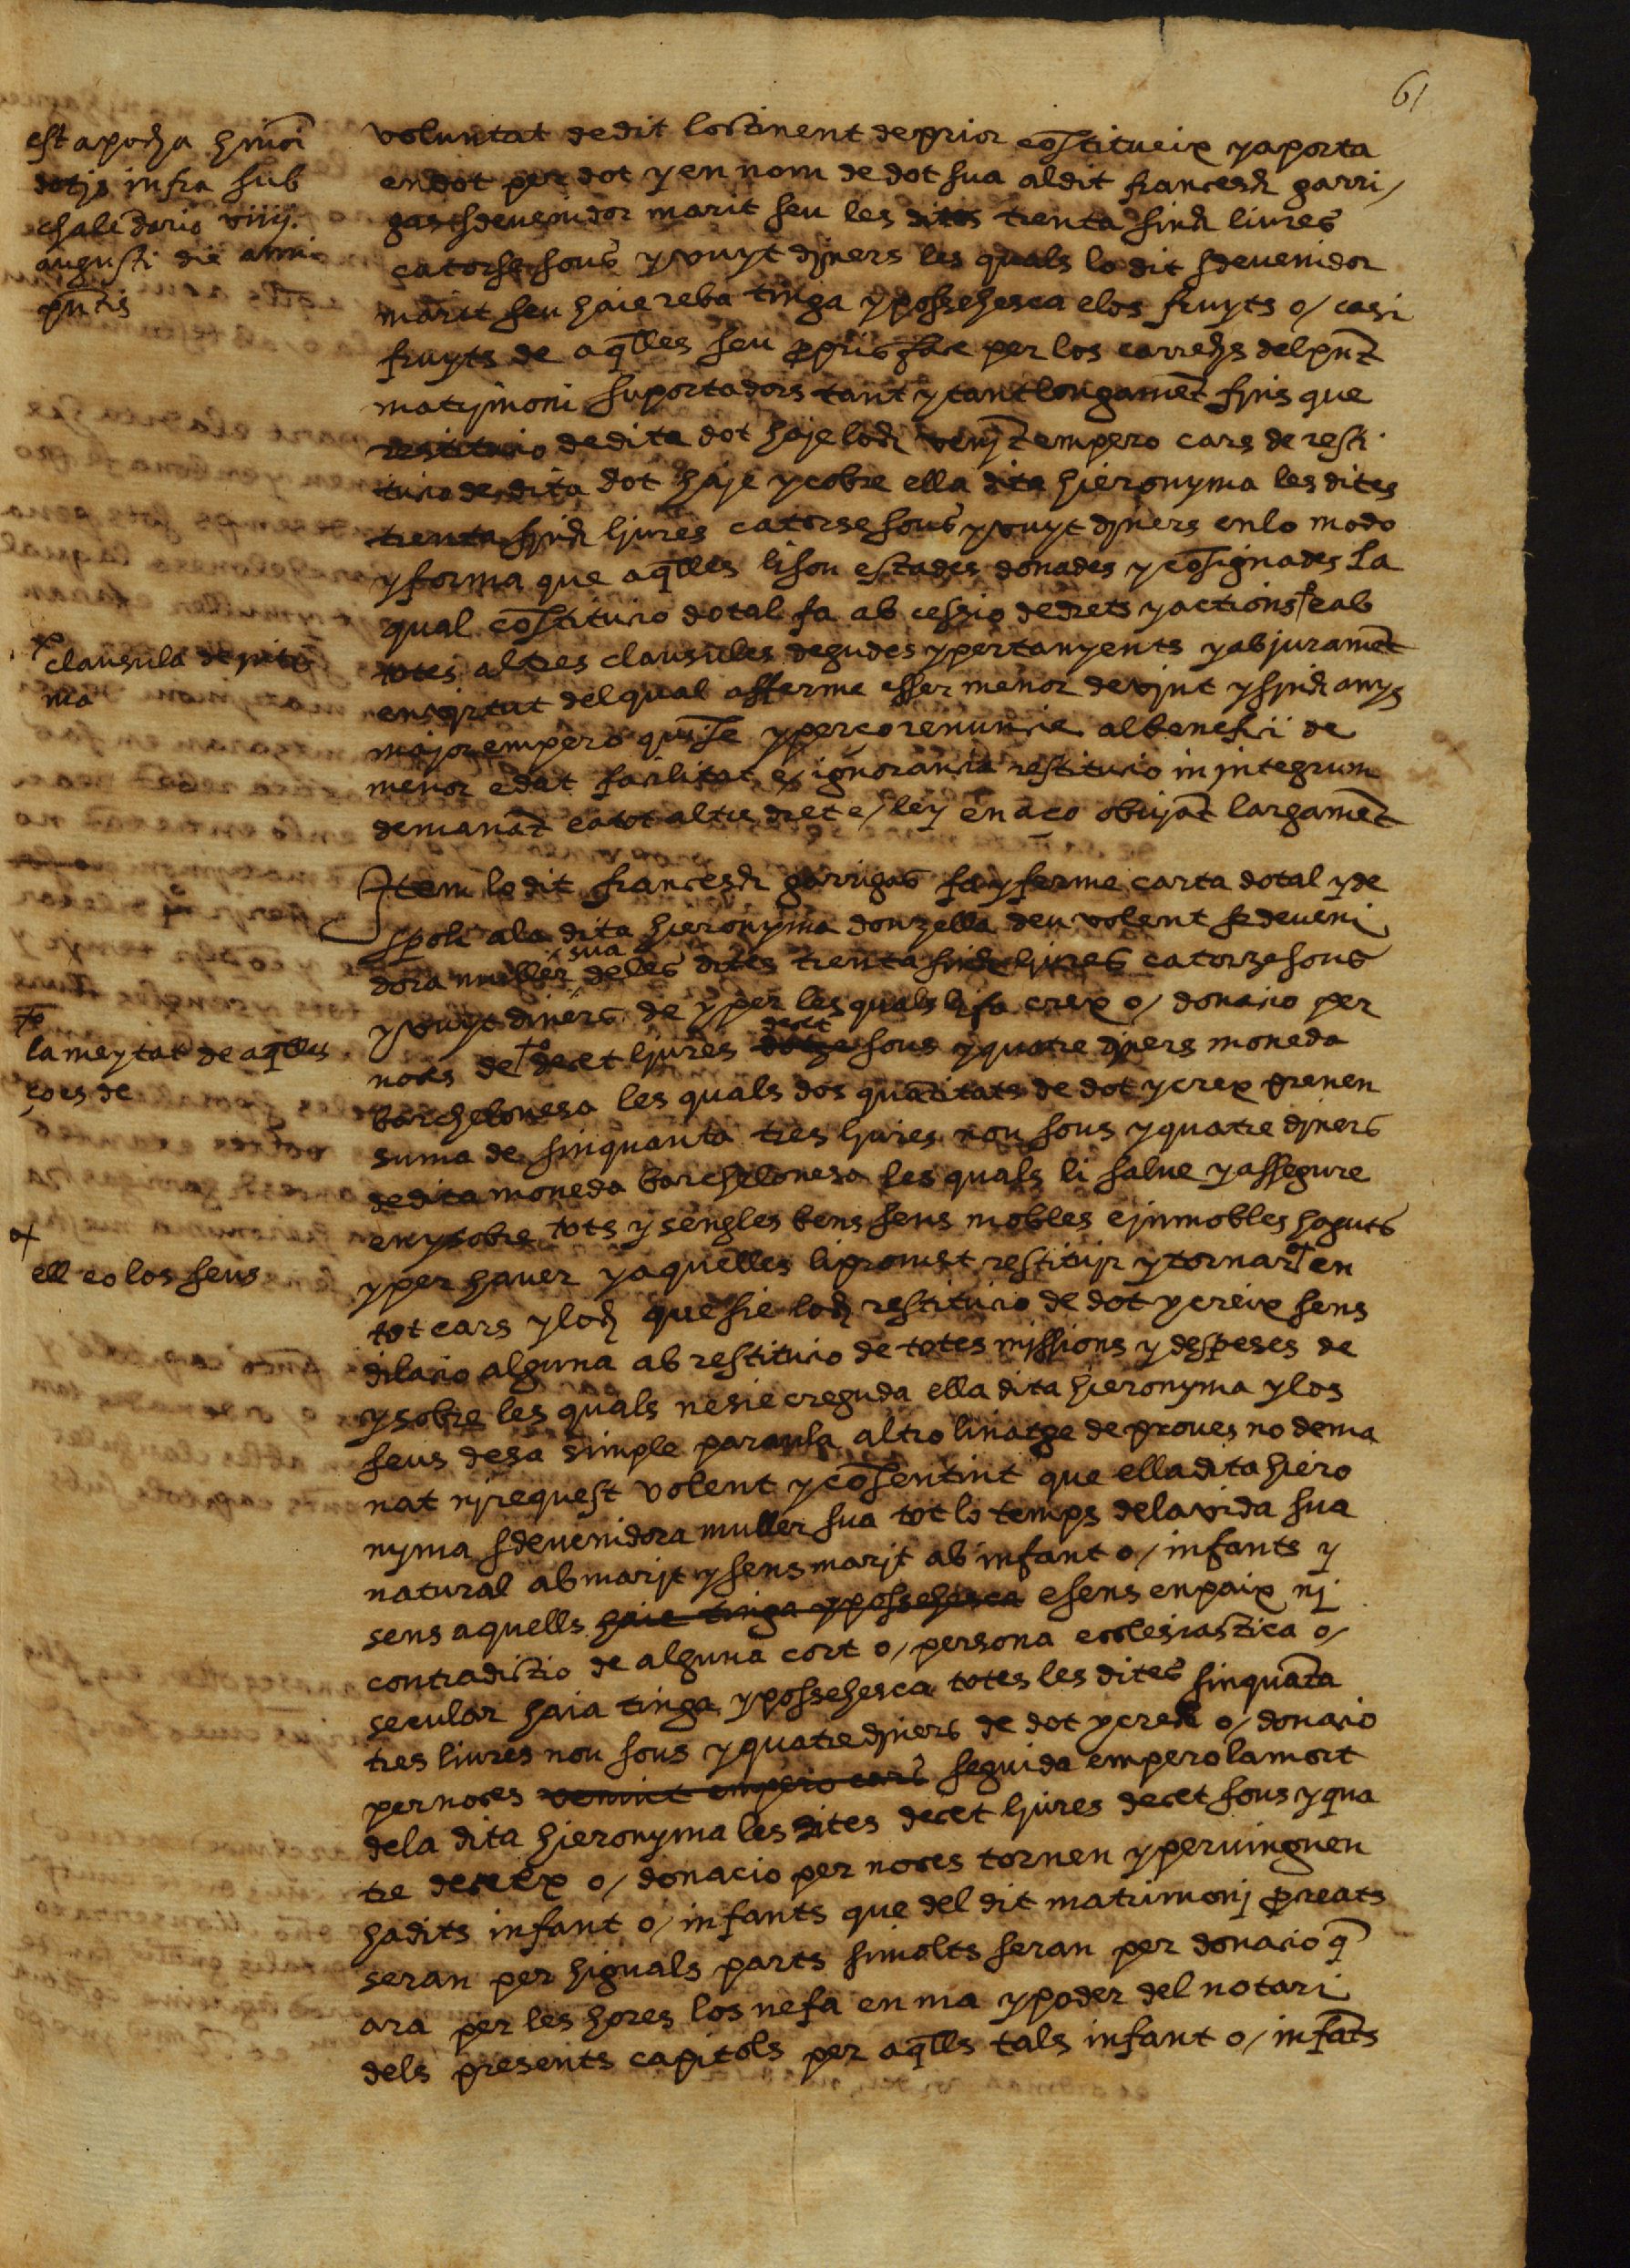 61
est apocha hmoi
dotis infra sub
chalendario viiij
augusti die anni
pntis
voluntat de dit loctinent de prior costitueix y aporta
en dot per dot y en nom de dot sua al dit francesch garri/
gas sdeuenidor marit seu les dites trenta sinch liures
catorse sous y vuyt diners les quals lo dit sdeuenidor
marit seu haie reba tinga y possehesca e los fruyts o/ casi
fruyts de aqlles seu propris face per los carrechs del pnt
matrimoni suportadors tant y tant longamet fins que
restitucio de dita dot haje loch venjt empero cars de resti
tucio de dita dot haje y cobre ella dita hieronyma les dites
trenta sinch liures catorse sous y vuyt diners en lo modo
y forma que aqlles li son estades donades y cosignades La
qual costitucio dotal fa ab cessio de drets y actions + e ab
+ clausula de
totes altres clausules degudes y pertanyents y ab jurament
en virtut del qual afferma esser menor de vint y sinch anys
major empero quinse y perço renuncia al benefici de
menor edat facilitat e/ ignorancia restitucio in integrum
demanat e a tot altre dret e/ ley en aço obviant largamet
Item lo dit francesch garrigas fa y ferma carta dotal y de
spoli a la dita hieronyma donzella deu volent sdeueni
dora muller sua de les dites trenta sinch liures catorze sous
y vuyt diners de y per les quals li fa creix o/ donacio per
noces de + deset liures dotze deset sous y quatre diners moneda
+ la meytat de aqlles
ço es de
barchelonesa les quals dos quatitats de dot y creix prenen
suma de sinquanta tres liures nou sous y quatre diners
de dita moneda barchelonesa les quals li salue y assegure
en y sobre tots y sengles bens seus mobles e inmobles haguts
y per hauer y aquelles li promet restituir y tornar + en
+ ell eo los seus
tot cars y loch que sie loch restitucio de dot y creix sens
dilacio alguna ab restitucio de totes missions y despeses de
y sobre les quals ne sie creguda ella dita hieronyma y los
seus de sa simple paraula altro linatge de proues no dema
nat ni request volent y cosentint que ella dita hiero
nyma sdeuenidora muller sua tot lo temps de la vida sua
natural ab marit y sens marit ab infant o/ infants y
sens aquells haie tinga y possehesca e sens en paix nj
contradictio de alguna cort o/ persona ecclesiastica o/
secular haia tinga y possehesca totes les dites sinquata
tres liures nou sous y quatre diners de dot y creix o/ donacio
per noces venint empero cars seguida empero la mort
de la dita hieronyma les dites deset liures deset sous y qua
tre de creix o/ donacio per noces tornen y peruinguen
ha dits infant o/ infants que del dit matrimonj procreats
seran per higuals parts si molts seran per donacio q
ara per les hores los ne fa en ma y poder del notari
dels presents capitols per aqlls tals infant o/ infats